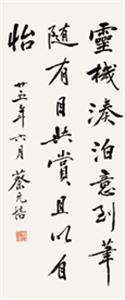 靈機湊泊意到筆
隨有目共賞且以自
怡
廿五年六月 蔡元培